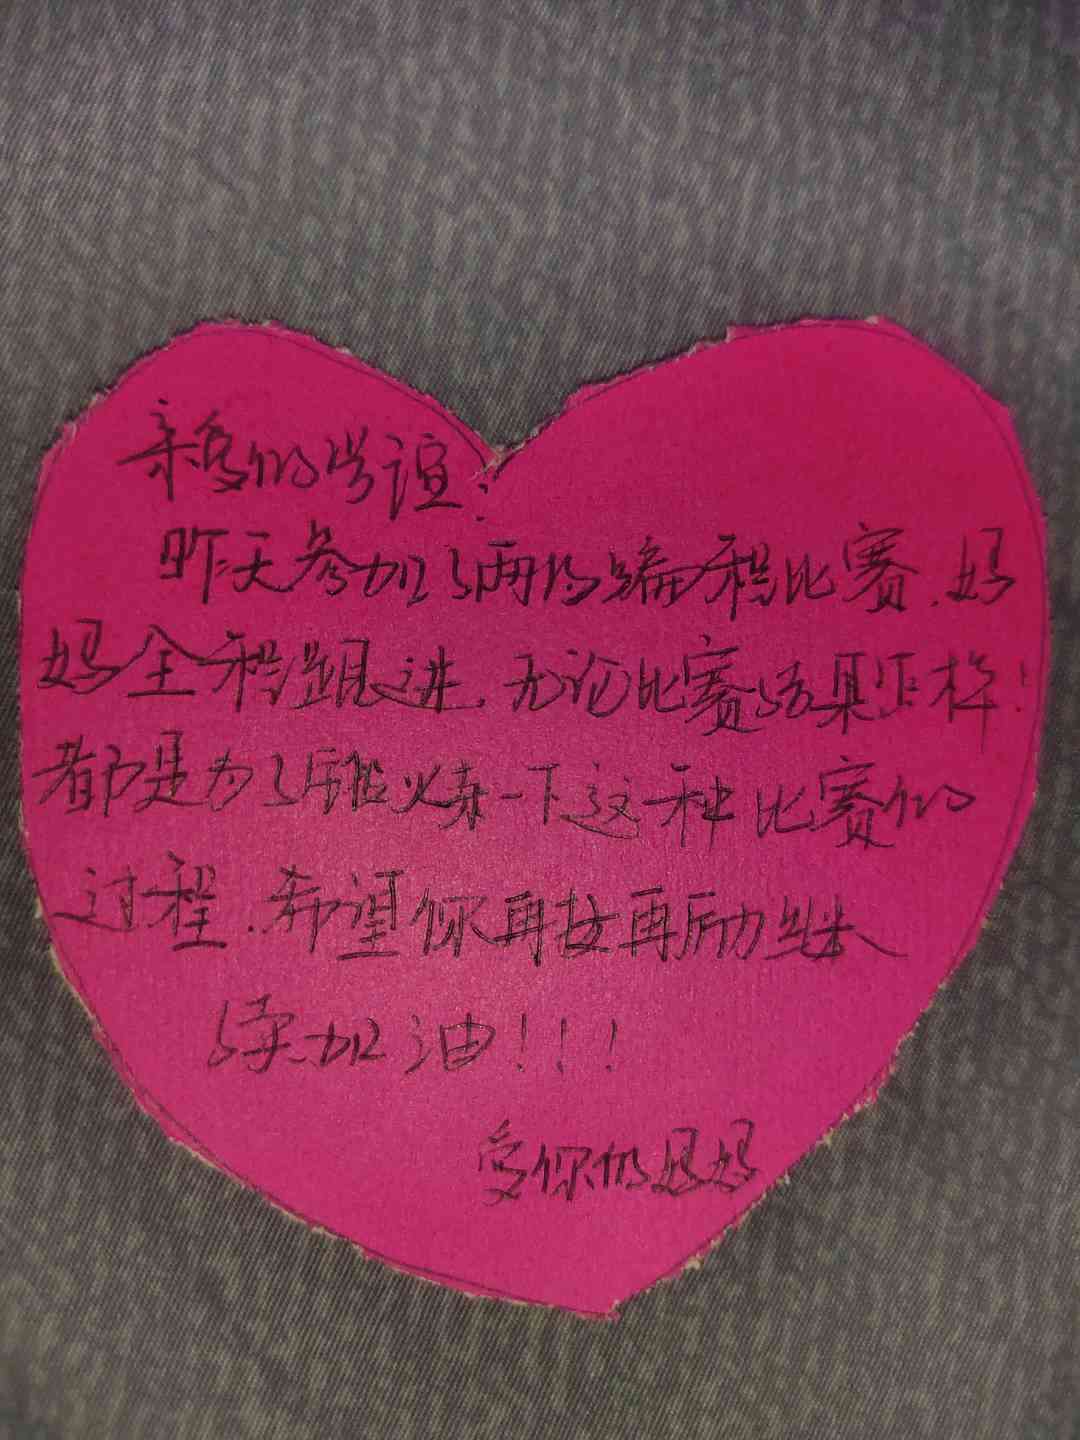 亲爱的学谊：
昨天参加了两场编程比赛.妈
妈全程跟进.无论比赛结果怎样！
都是为了锻炼一下这种比赛的
过程.希望你再接再励继
续加油！！！
爱你的妈妈